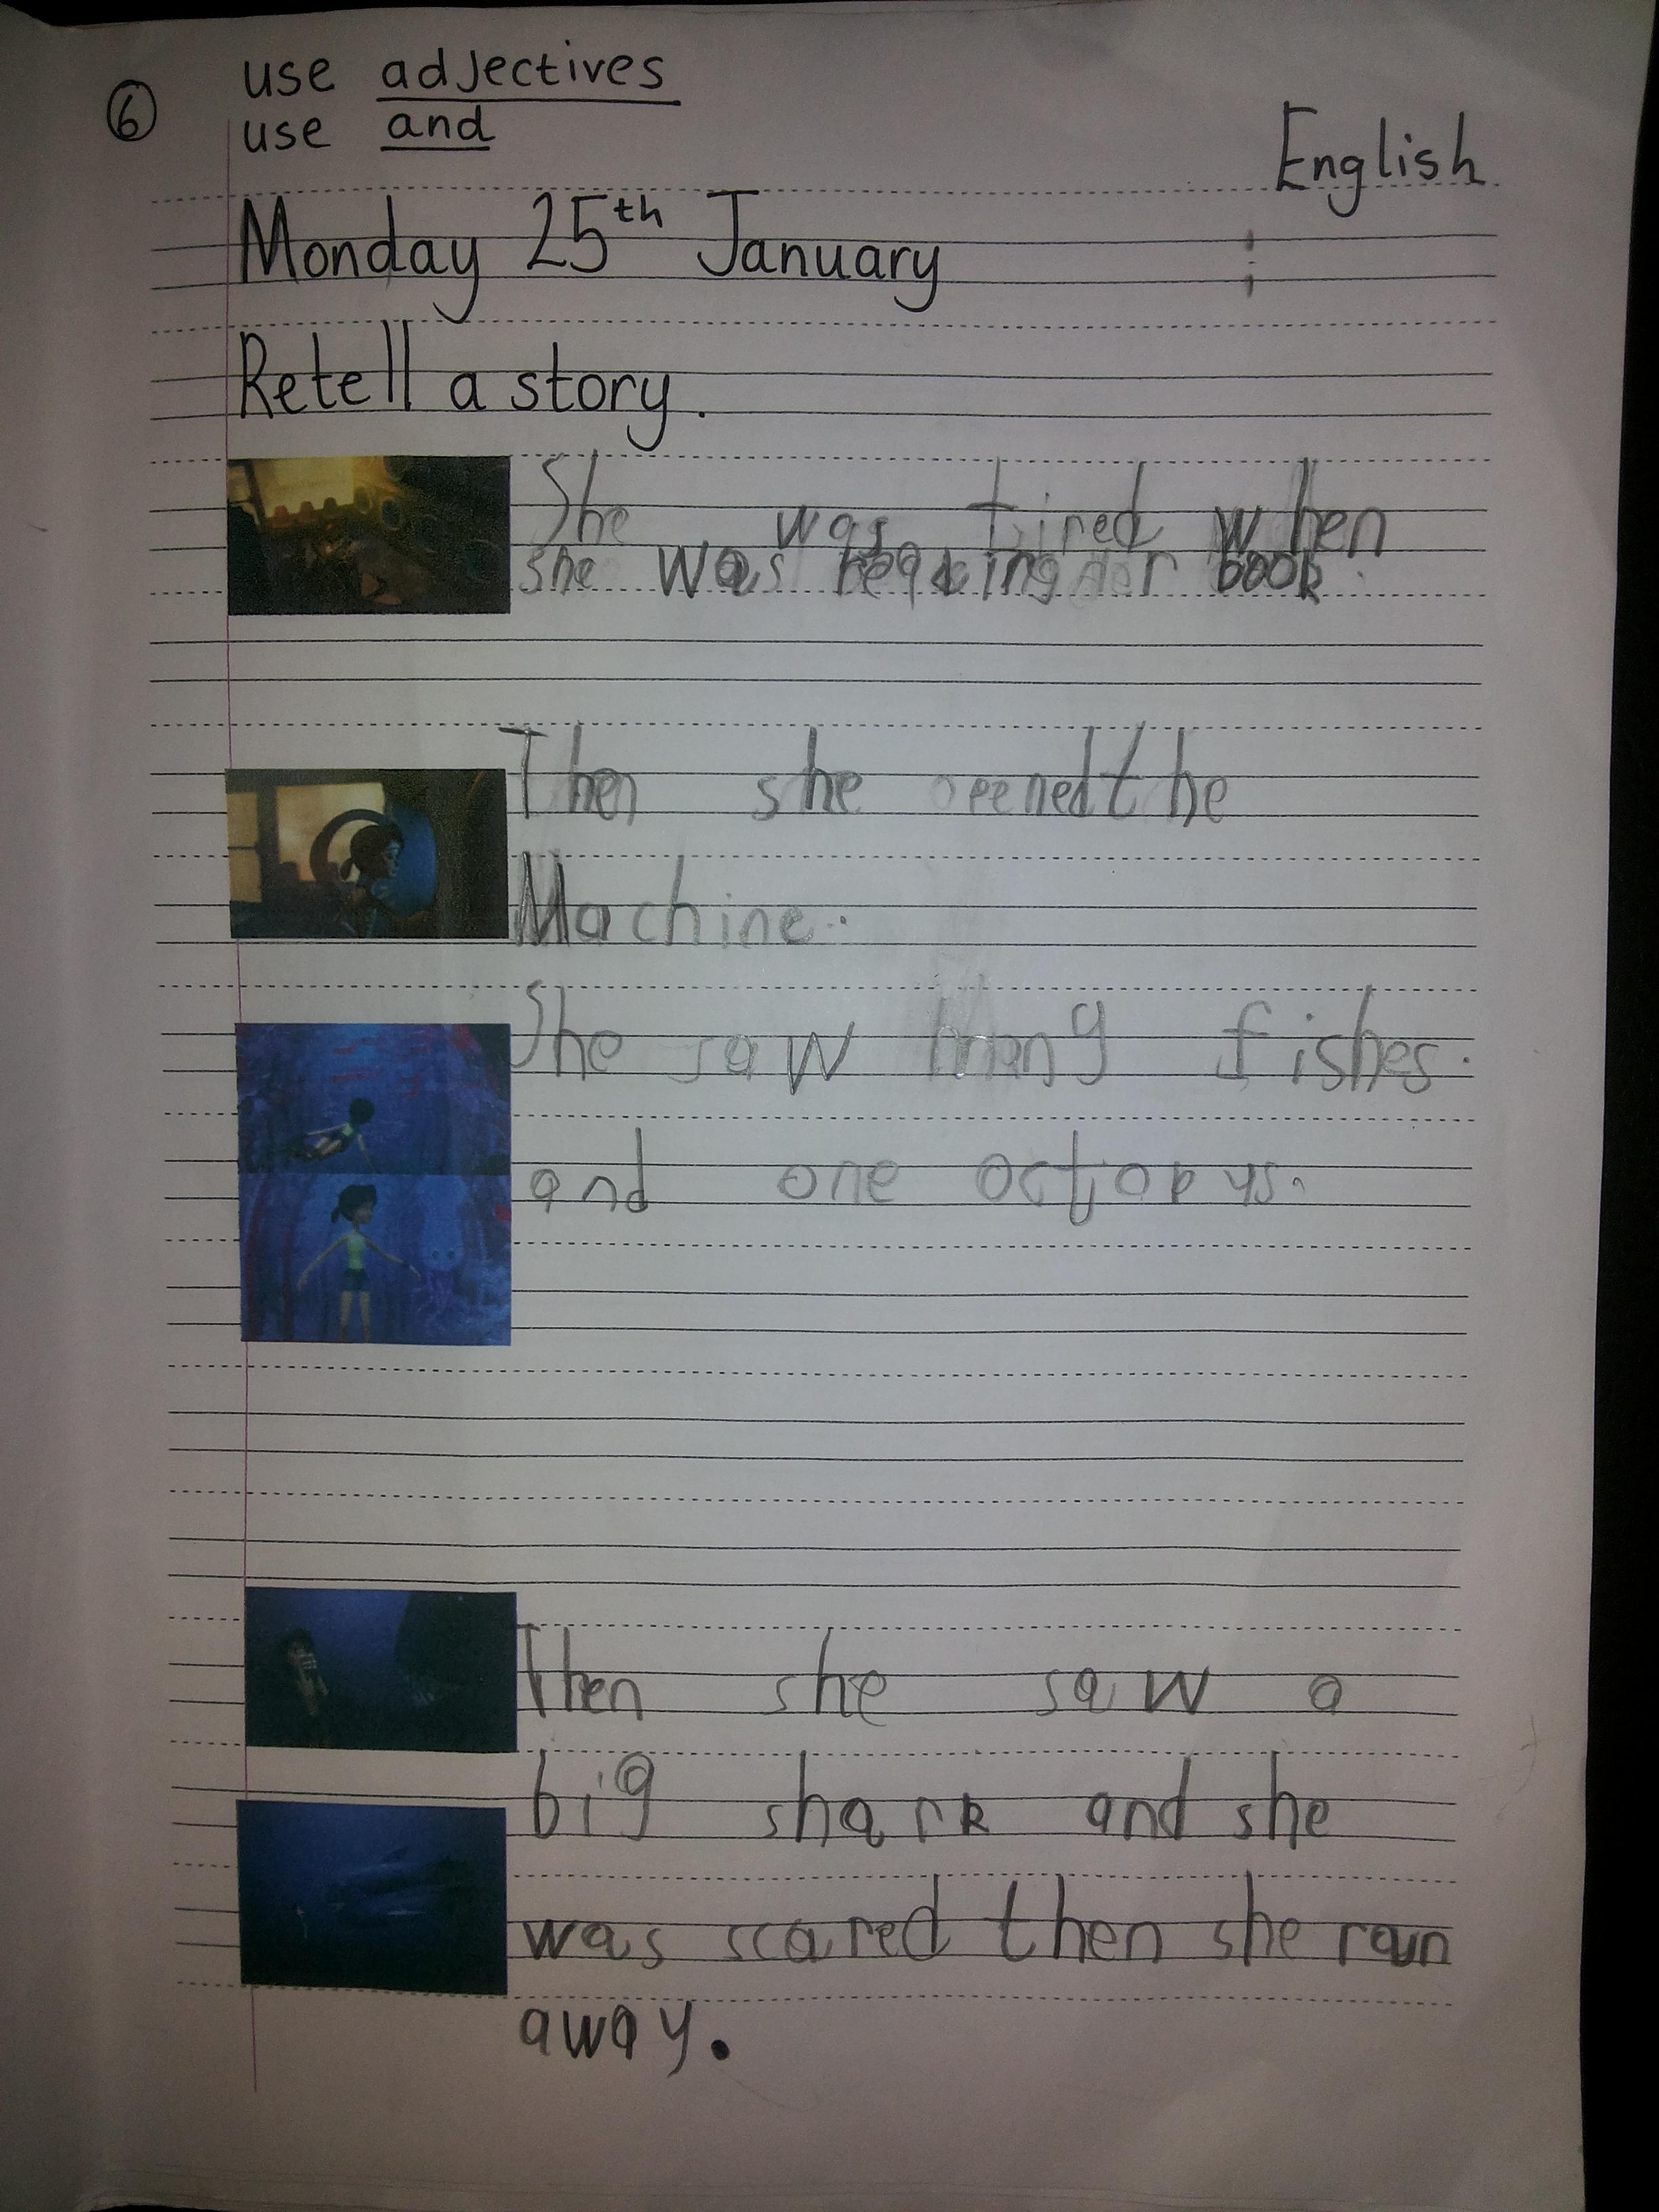 6
use adjectives
use and
English
Monday 25th January
Retell a story.
She was tired when
she was reading her book.
Then she opened the
Machine.
She saw many fishes.
and one octopus.
Then she saw a
big shark and she
was scared then she ran
away.